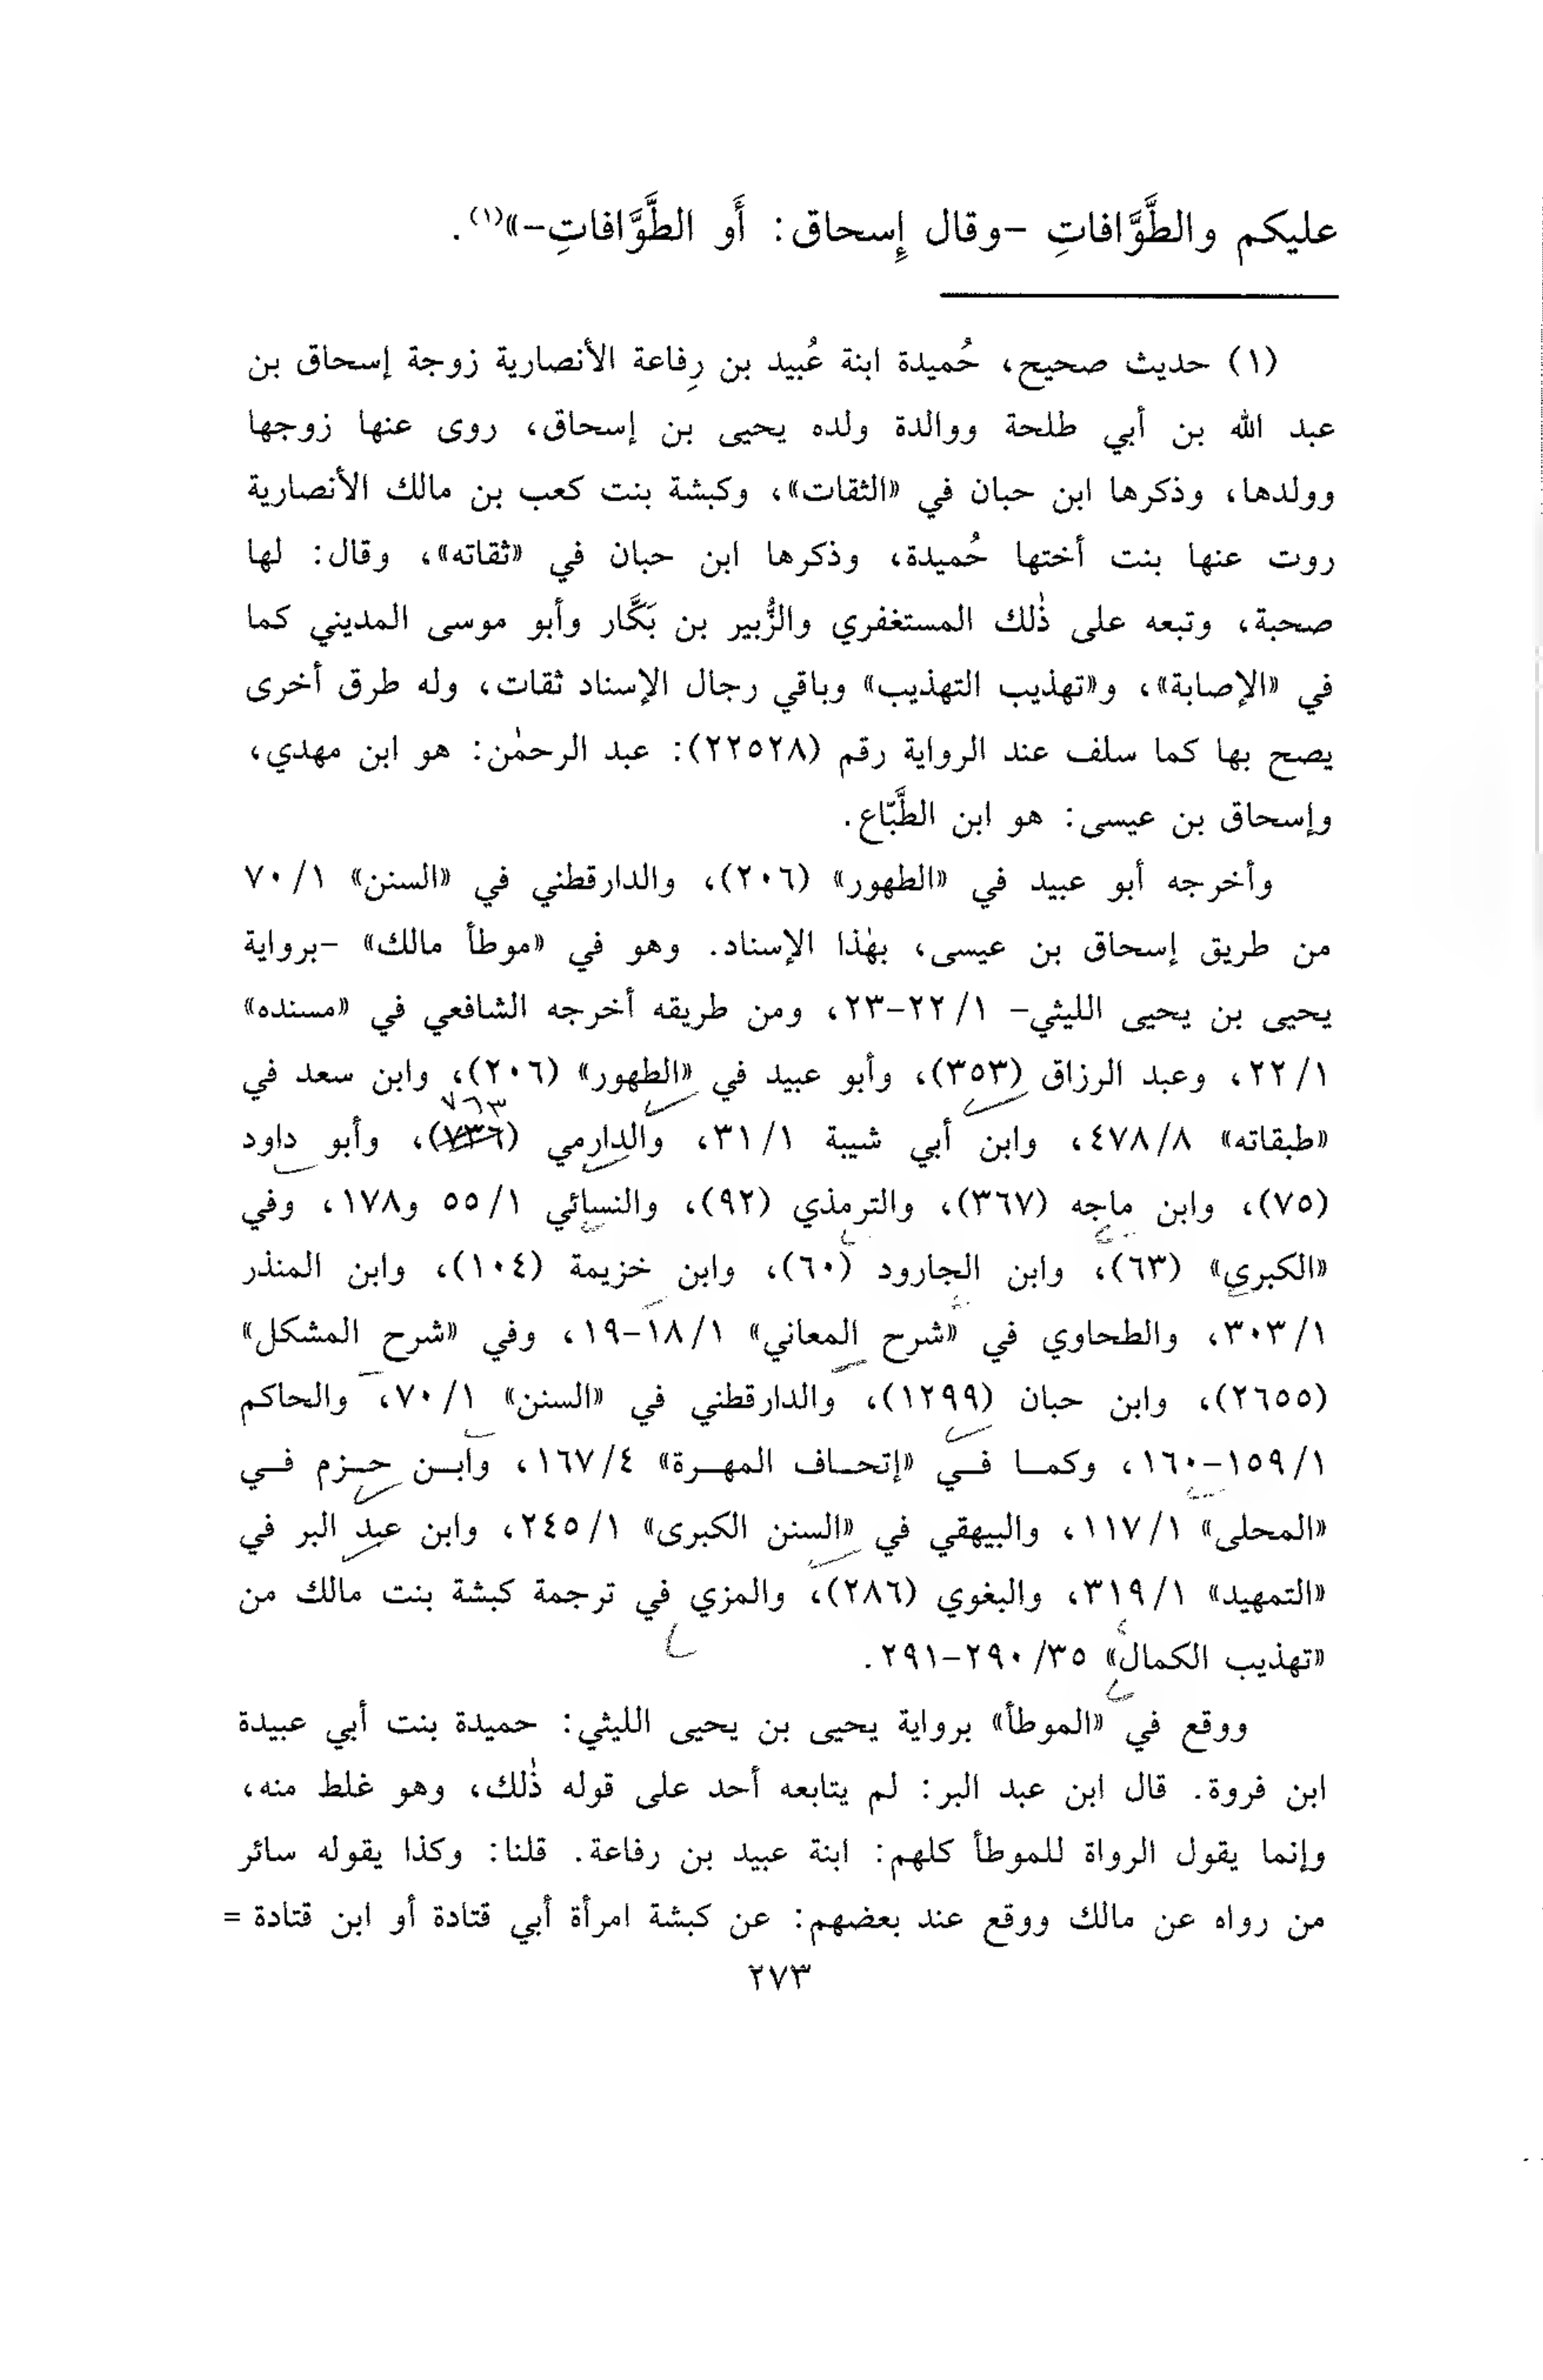 عليكم والطَّوَّافاتِ -وقال إِسحاق: أَو الطَّوَّافاتِ-»(١).
(١) حديث صحيح، حُميدة ابنة عُبيد بن رِفاعة الأنصارية زوجة إسحاق بن
عبد الله بن أبي طلحة ووالدة ولده يحيى بن إسحاق، روى عنها زوجها
وولدها، وذكرها ابن حبان في «الثقات»، وكبشة بنت كعب بن مالك الأنصارية
روت عنها بنت أختها حُميدة، وذكرها ابن حبان في «ثقاته»، وقال: لها
صحبة، وتبعه على ذٰلك المستغفري والزُّبير بن بَكَّار وأبو موسى المديني كما
في «الإصابة»، و«تهذيب التهذيب» وباقي رجال الإسناد ثقات، وله طرق أخرى
يصح بها كما سلف عند الرواية رقم (٢٢٥٢٨): عبد الرحمٰن: هو ابن مهدي،
وإسحاق بن عيسى: هو ابن الطَّبّاع.
وأخرجه أبو عبيد في «الطهور» (٢٠٦)، والدارقطني في «السنن» ٧٠/١
من طريق إسحاق بن عيسى، بهٰذا الإسناد. وهو في «موطأ مالك» -برواية
يحيى بن يحيى الليثي- ٢٢/١-٢٣، ومن طريقه أخرجه الشافعي في «مسنده»
٢٢/١، وعبد الرزاق (٣٥٣)، وأبو عبيد في «الطهور» (٢٠٦)، وابن سعد في
٧٦٣
«طبقاته» ٤٧٨/٨، وابن أبي شيبة ٣١/١، والدارمي (٧٣٦)، وأبو داود
(٧٥)، وابن ماجه (٣٦٧)، والترمذي (٩٢)، والنسائي ٥٥/١ و١٧٨، وفي
«الكبرى» (٦٣)، وابن الجارود (٦٠)، وابن خزيمة (١٠٤)، وابن المنذر
٣٠٣/١، والطحاوي في «شرح المعاني» ١٨/١-١٩، وفي «شرح المشكل»
(٢٦٥٥)، وابن حبان (١٢٩٩)، والدارقطني في «السنن» ٧٠/١، والحاكم
١٥٩/١-١٦٠، وكما في «إتحاف المهرة» ١٦٧/٤، وابن حزم في
«المحلى» ١١٧/١، والبيهقي في «السنن الكبرى» ٢٤٥/١، وابن عبد البر في
«التمهيد» ٣١٩/١، والبغوي (٢٨٦)، والمزي في ترجمة كبشة بنت مالك من
«تهذيب الكمال» ٢٩٠/٣٥-٢٩١.
ووقع في «الموطأ» برواية يحيى بن يحيى الليثي: حميدة بنت أبي عبيدة
ابن فروة. قال ابن عبد البر: لم يتابعه أحد على قوله ذٰلك، وهو غلط منه،
وإنما يقول الرواة للموطأ كلهم: ابنة عبيد بن رفاعة. قلنا: وكذا يقوله سائر
من رواه عن مالك ووقع عند بعضهم: عن كبشة امرأة أبي قتادة أو ابن قتادة =
٢٧٣